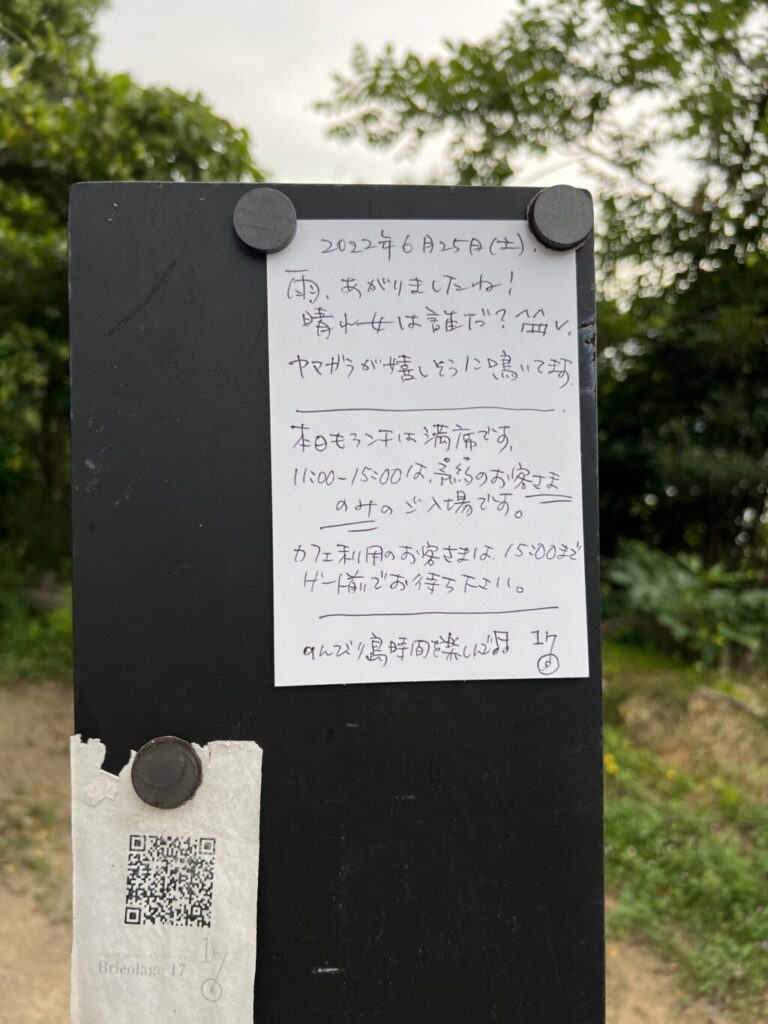 2022年6月25日(土).
雨、あがりましたね!
晴れ女は誰だ?
ヤマガラが嬉しそうに鳴いてます.
本日もランチは満席です.
11:00-15:00は、予約のお客さま
のみのご入場です。
カフェ利用のお客さまは、15:00まで
ゲート前でお待ち下さい。
のんびり島時間を楽しんで♫ 17
17
Bricolage 17